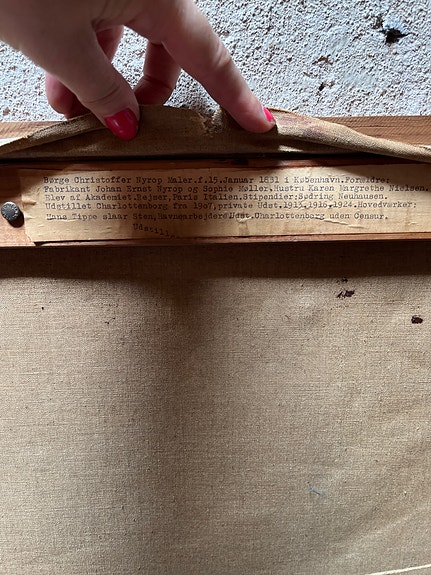 Børge Christoffer Nyrop Maler.f.15.Januar 1831 i København.Forældre;
Fabrikant Johan Ernst Nyrop og Sophie Møller.Hustru Karen Margrethe Nielsen.
Elev af Akademiet.Rejser,Paris Italien.Stipendier;Sødring Neuhausen.
Udstillet Charlottenborg fra 1907,private Udst.1913.1916.1924.Hovedværker;
Mans Tippe slaar Sten,Havnearbejdere Udst.Charlottenborg uden Censur.